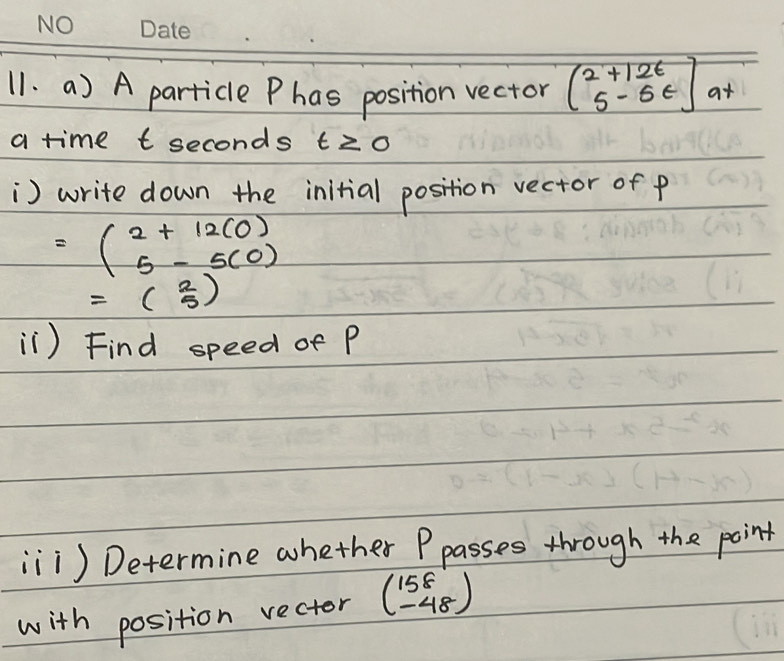 NO Date . .
11. a) A particle P has position vector (2+12t
5-5t] at
a time t seconds t≥0
i) write down the initial position vector of p
= (2 + 12(0)
5 - 5(0)
= (2
5)
ii) Find speed of P
iii) Determine whether P passes through the point
with position vector (158
-48)